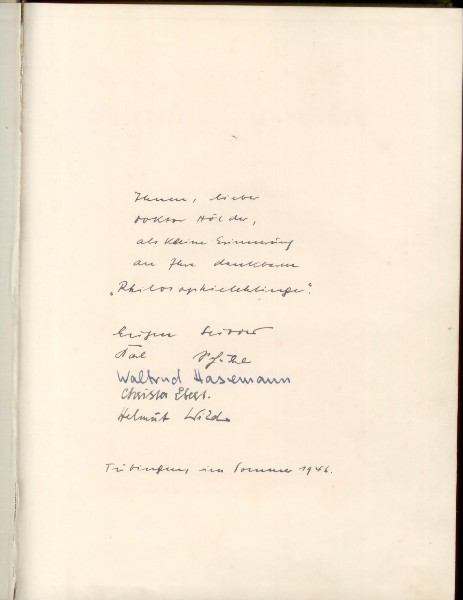 Ihnen, lieber
Doktor Hölder,
als kleine Erinnerung
an Ihre dankbaren
„Philosophielehrlinge“.
Eugen
Waltrud Hasemann
Christa Ebert.
Helmut
Tübingen, im Sommer 1946.